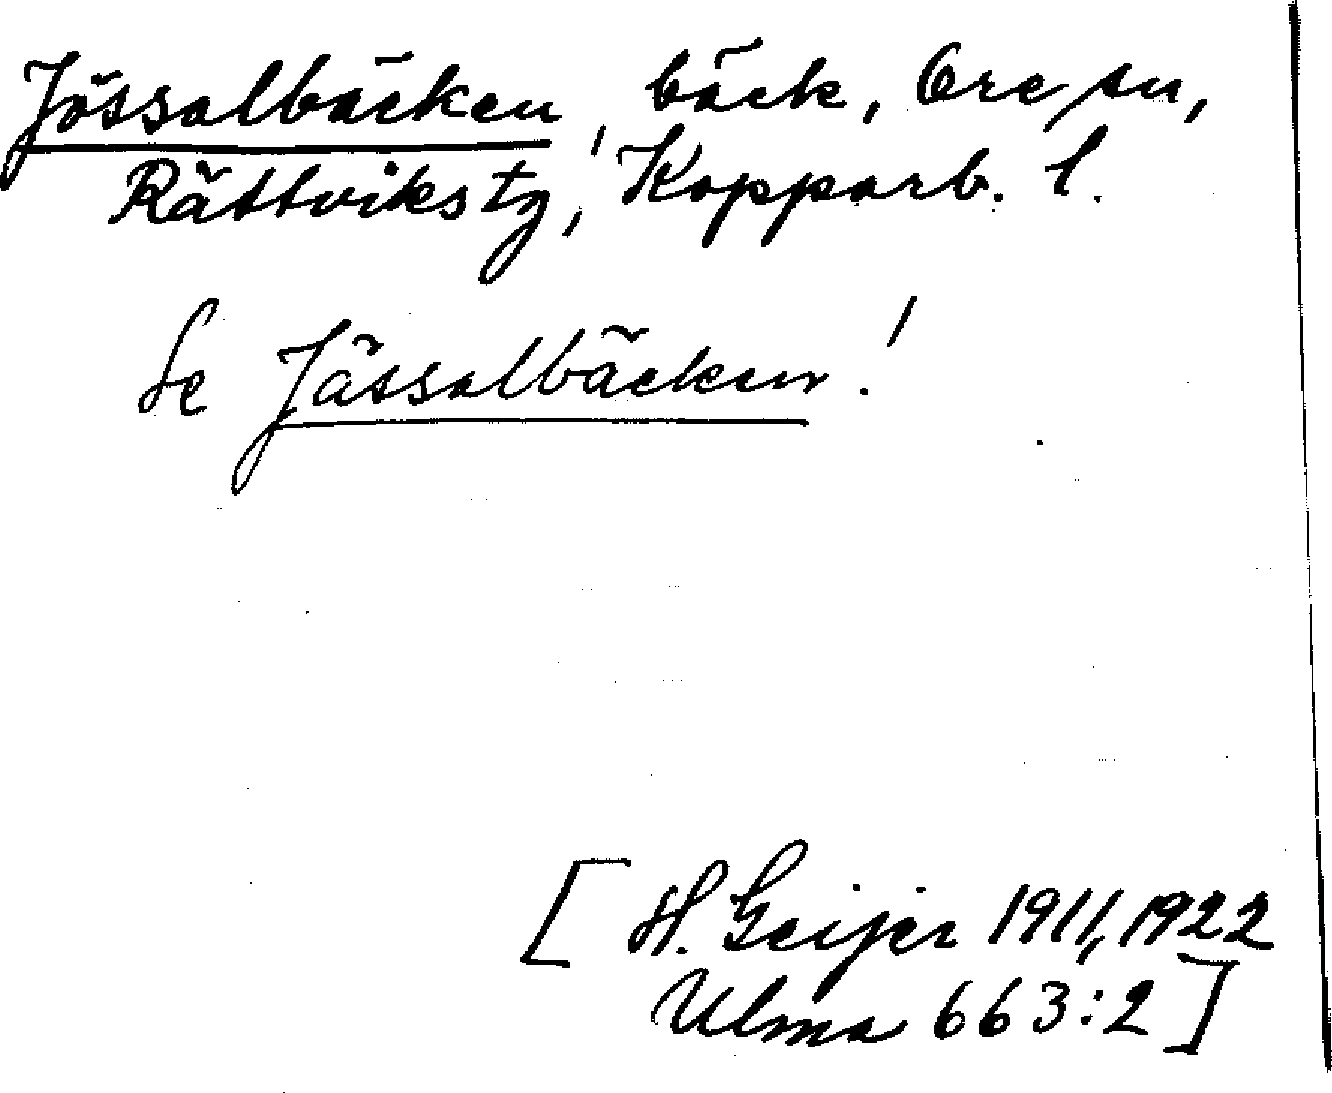 Jössalbäcken, bäck, Ore sn,
Rättviks tg, Kopparb. l.
Se Jässalbäcken!
[H. Geijer 1911, 1922
Ulma 663:2]